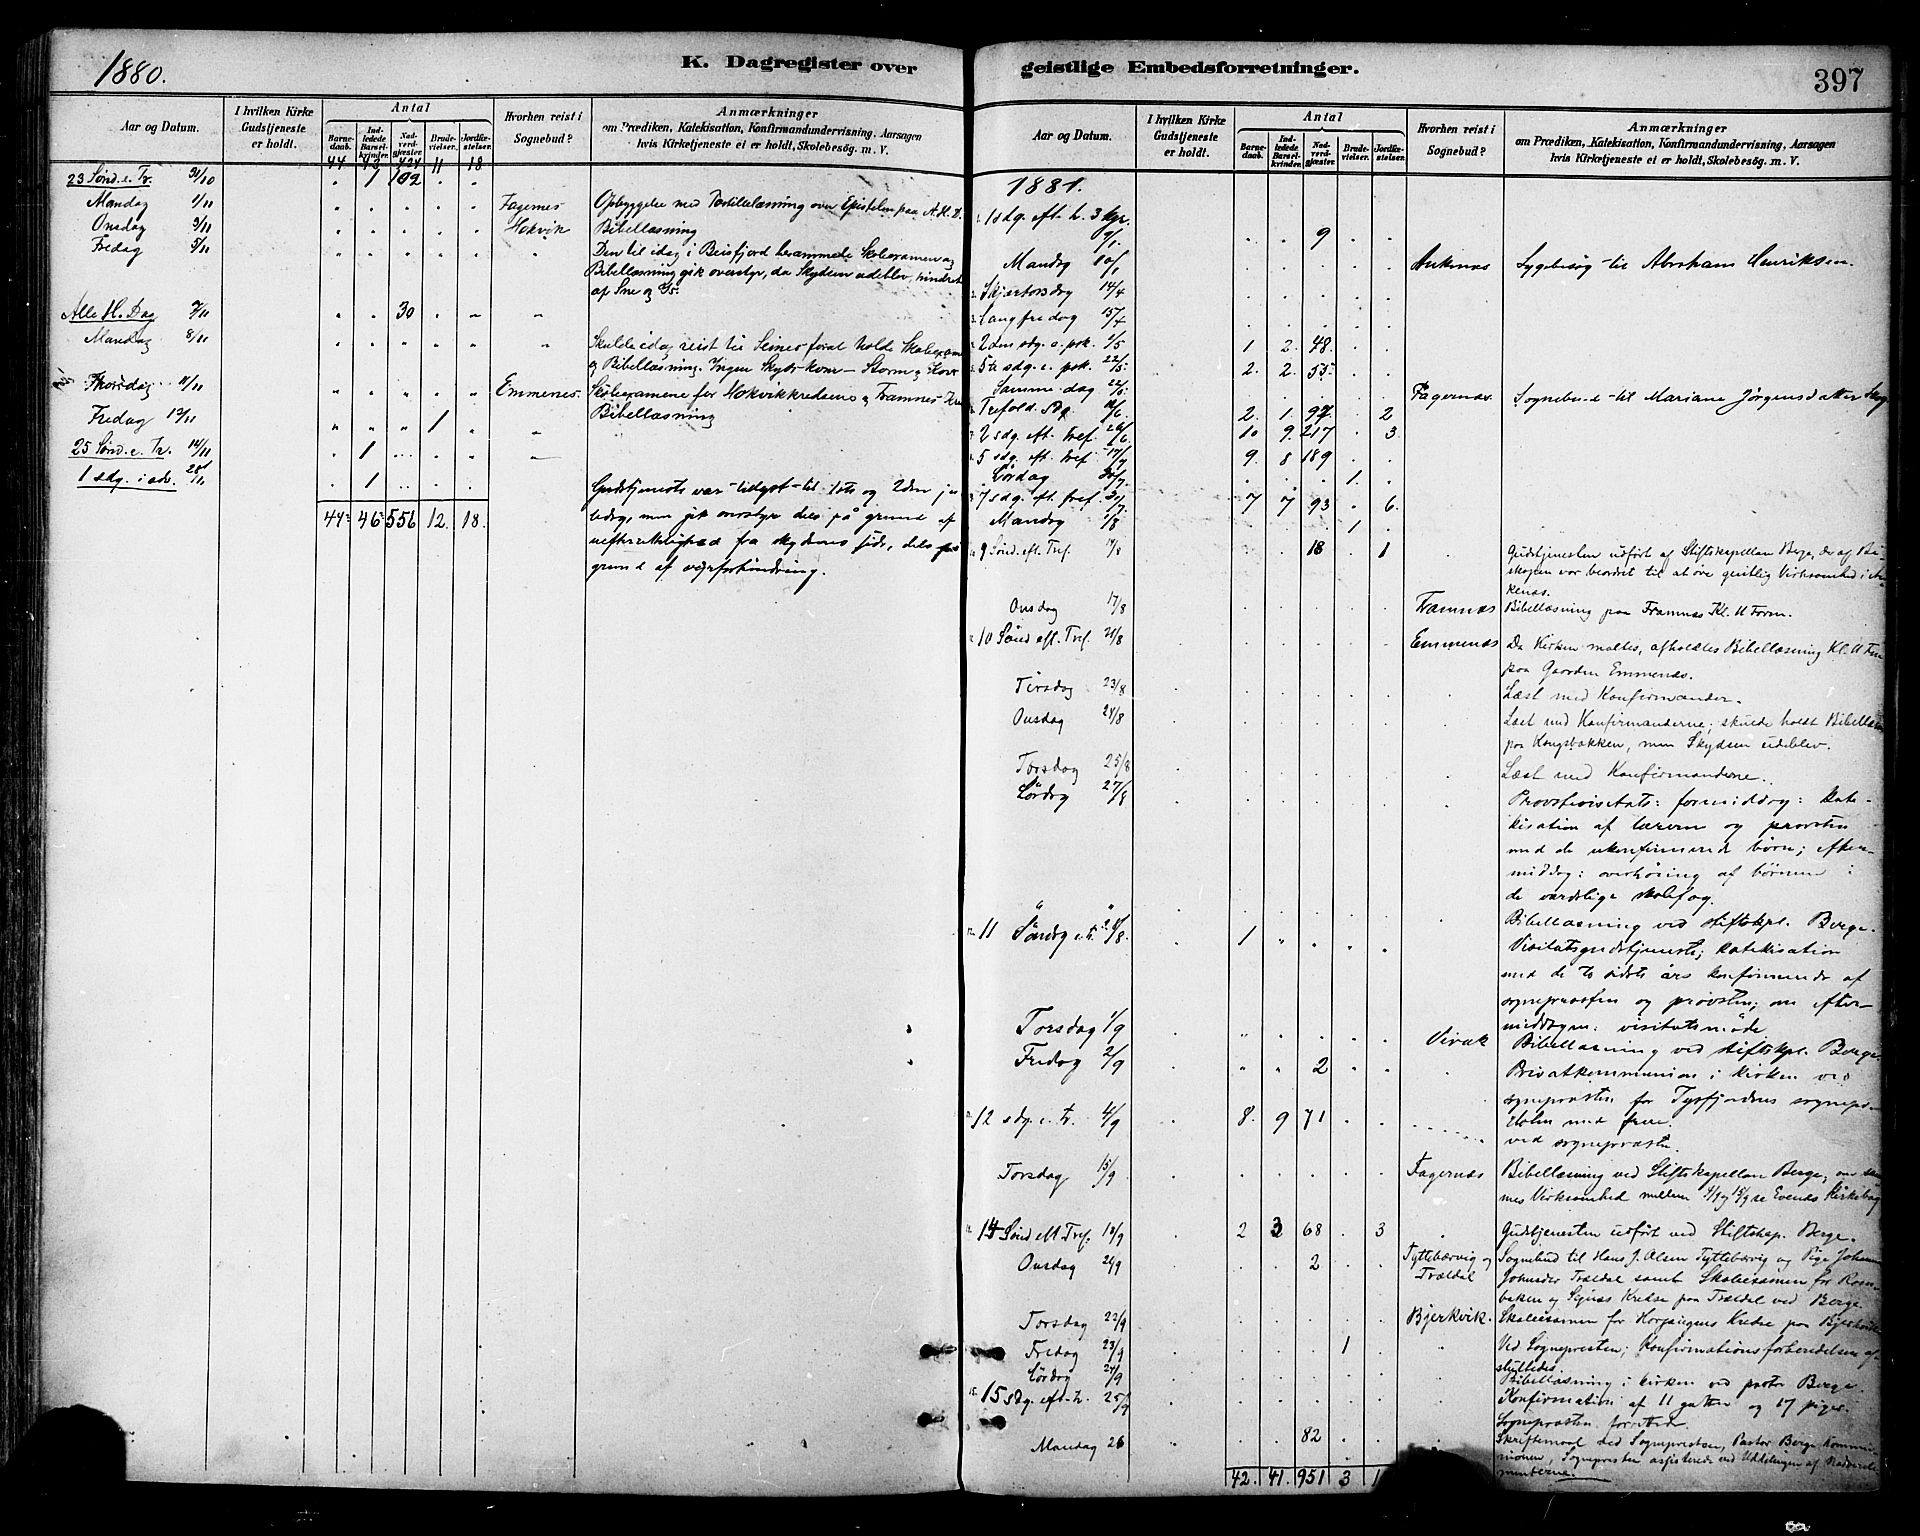 1880.
K. Dagregister over
Aar og Datum.
I hvilken Kirke Gudstjeneste er holdt.
Antal
Barne-daab.
Ind-ledede Barsel-kvinder.
Nad-verd-gjæster.
Brude-vielser.
Jordfæ-stelser.
Hvorhen reist i Sognebud?
Anmærkninger
om Prædiken, Katekisation, Konfirmandundervisning, Aarsagen
hvis Kirketjeneste ei er holdt, Skolebesög. m. V.
44 43 424 11 18
23 Sönd. e. Tr. 31/10 " 1 102 " "
Mandag 1/11 Fagernes Opbyggelse med Textillelæsning over Epistelen paa A. H. D.
Onsdag 3/11 Hokvik Bibellæsning
Fredag 5/11 Den til idag i Beisfjord berammede Skoleexamen og
Bibellæsning gik overstyr, da Skydsen udeblev, hindret
af Sne og Is.
Alle H. Dag 7/11 " " 30 " "
Mandag 8/11 Skulde idag reist til Seines for at holde Skoleexamen
og Bibellæsning. Ingen Skyds kom - Storm og
Thorsdag 11/11 Emmenes. Skoleexamene for Hokvikkredsene og Framnes Kreds
Bibellæsning
Fredag 12/11 " " " 1 "
25 Sönd. e. Tr. 14/11 " 1
1 sdg. i adv. 28/11 . 1
Gudstjeneste var tillyst til 1ste og 2den jule-
44 46 556 12. 18.
dag, men gik overstyr dels på grund af
uefterrettelighed fra skydsens side, dels på
grund af vejrforhindring.
geistlige Embedsforretninger.
397
Aar og Datum.
I hvilken Kirke Gudstjeneste er holdt.
Antal
Barne-daab.
Ind-ledede Barsel-kvinder.
Nad-verd-gjæster.
Brude-vielser.
Jordfæ-stelser.
Hvorhen reist i Sognebud?
Anmærkninger
om Prædiken, Katekisation, Konfirmandundervisning, Aarsagen
hvis Kirketjeneste ei er holdt, Skolebesög. m. V.
1881.
1 sdg. eft. h. 3 kgr.
9/1. . . 9 . .
Mandag 10/1 Ankenæs Sygebesøg til Abraham Henriksen.
Skjærtorsdag 14/4
Langfredag 15/4
2den sdg. e. psk. 1/5 1 2. 48.
5te sdg. e. psk. 22/5. 2. 2. 55.
Samme dag 22/5. Fagernæs. Sognebud til Mariane Jörgensdatter
Trefold. 12/6 2. 1. 97. . 2
2 sdg. eft. Tref. 26/6 10 9. 217 . 3.
5 sdg. eft. Tref 17/7 9. 8 189 . .
Lördag 30/7 . . . 1. .
7 sdg. eft. tref. 31/7 7 7 93 . 6.
Mandag 1/8 . . . 1 .
9 Sönd. eft. Tref. 14/8 . . 18 . 1 Gudstjenesten udført af Stiftskapellan Berge, der af Bi-
skopen var beordret til at öve geistlig Virksomhed i An-
kenæs.
Onsdag 17/8 Framnæs Bibellæsning paa Framnæs Kl. 11 Form.
10 Sönd eft. Tref. 21/8 Emmenæs Da Kirken maltes, afholdtes Bibellæsning Kl. 11 Fm
paa Gaarden Emmenæs.
Tirsdag 23/8 Læst med Konfirmander.
Onsdag 24/8 Læst med Konfirmanderne; skulde holdt Bibellæsn.
paa Kongsbakken, men Skydsen udeblev.
Torsdag 25/8 Læst med Konfirmanderne.
Lördag 27/8 Provstevisitats: formiddag: kate-
kisation af læreren og provsten
med de ukonfirmerede börn; efter-
middag: overhöring af börnene i
de værdslige skolefag.
Bibellæsning ved stiftskpl. Berge.
11 Söndag e. tr. 28/8. 1 " . . . Visitatsgudstjeneste; katekisation
med de to sidste års konfirmerede af
sognepræsten og prøvsten; om efter-
middagen: visitatsmøde
Torsdag 1/9 Virak Bibellæsning ved stiftskpl. Berge.
Fredag 2/9 " " 2 . . Privatkommunion i kirken ved
sognepræsten for Tysfjordens sognepr.
Holm med frue.
12 sdg. e. tr. 4/9 8. 9 71 . . ved sognepræsten.
Torsdag 15/9 Fagernæs Bibellæsning ved Stiftskapellan Berge, om
mes Virksomhed mellem 4/9 og 15/9 se Evenæs Kirkebog
14 Sönd eft Tref. 18/9 2 3 68 . 3 Gudstjenesten udfört ved Stiftskap. Berge.
Onsdag 21/9 . . 2 . . Tyttebærvig og Trældal Sognebud til Hans J. Olsen Tyttebærvig og Pige Johanna
Johnsdtr Trældal samt Skoleexamen for
Kredse paa Trældal ved Berge.
Torsdag 22/9 Bjerkvik. Skoleexamen for Kredse paa Bjerkvik
Fredag 23/9 . . . 1 . Ved Sognepresten; Konfirmationsforberedelsen af-
sluttedes
Lördag 24/9 Bibellæsning i kirken ved pastor Berge
15 sdg. eft. tr. 25/9 Konfirmation af 11 gutter og 17 piger.
Sognepræsten forrettede
Mandag 26 . . 82 . . Skriftemaal ved Sognepresten, Pastor Berge Kommu-
nionen, Sognepresten assisterede ved Uddelingen af
42. 41. 951 3 1